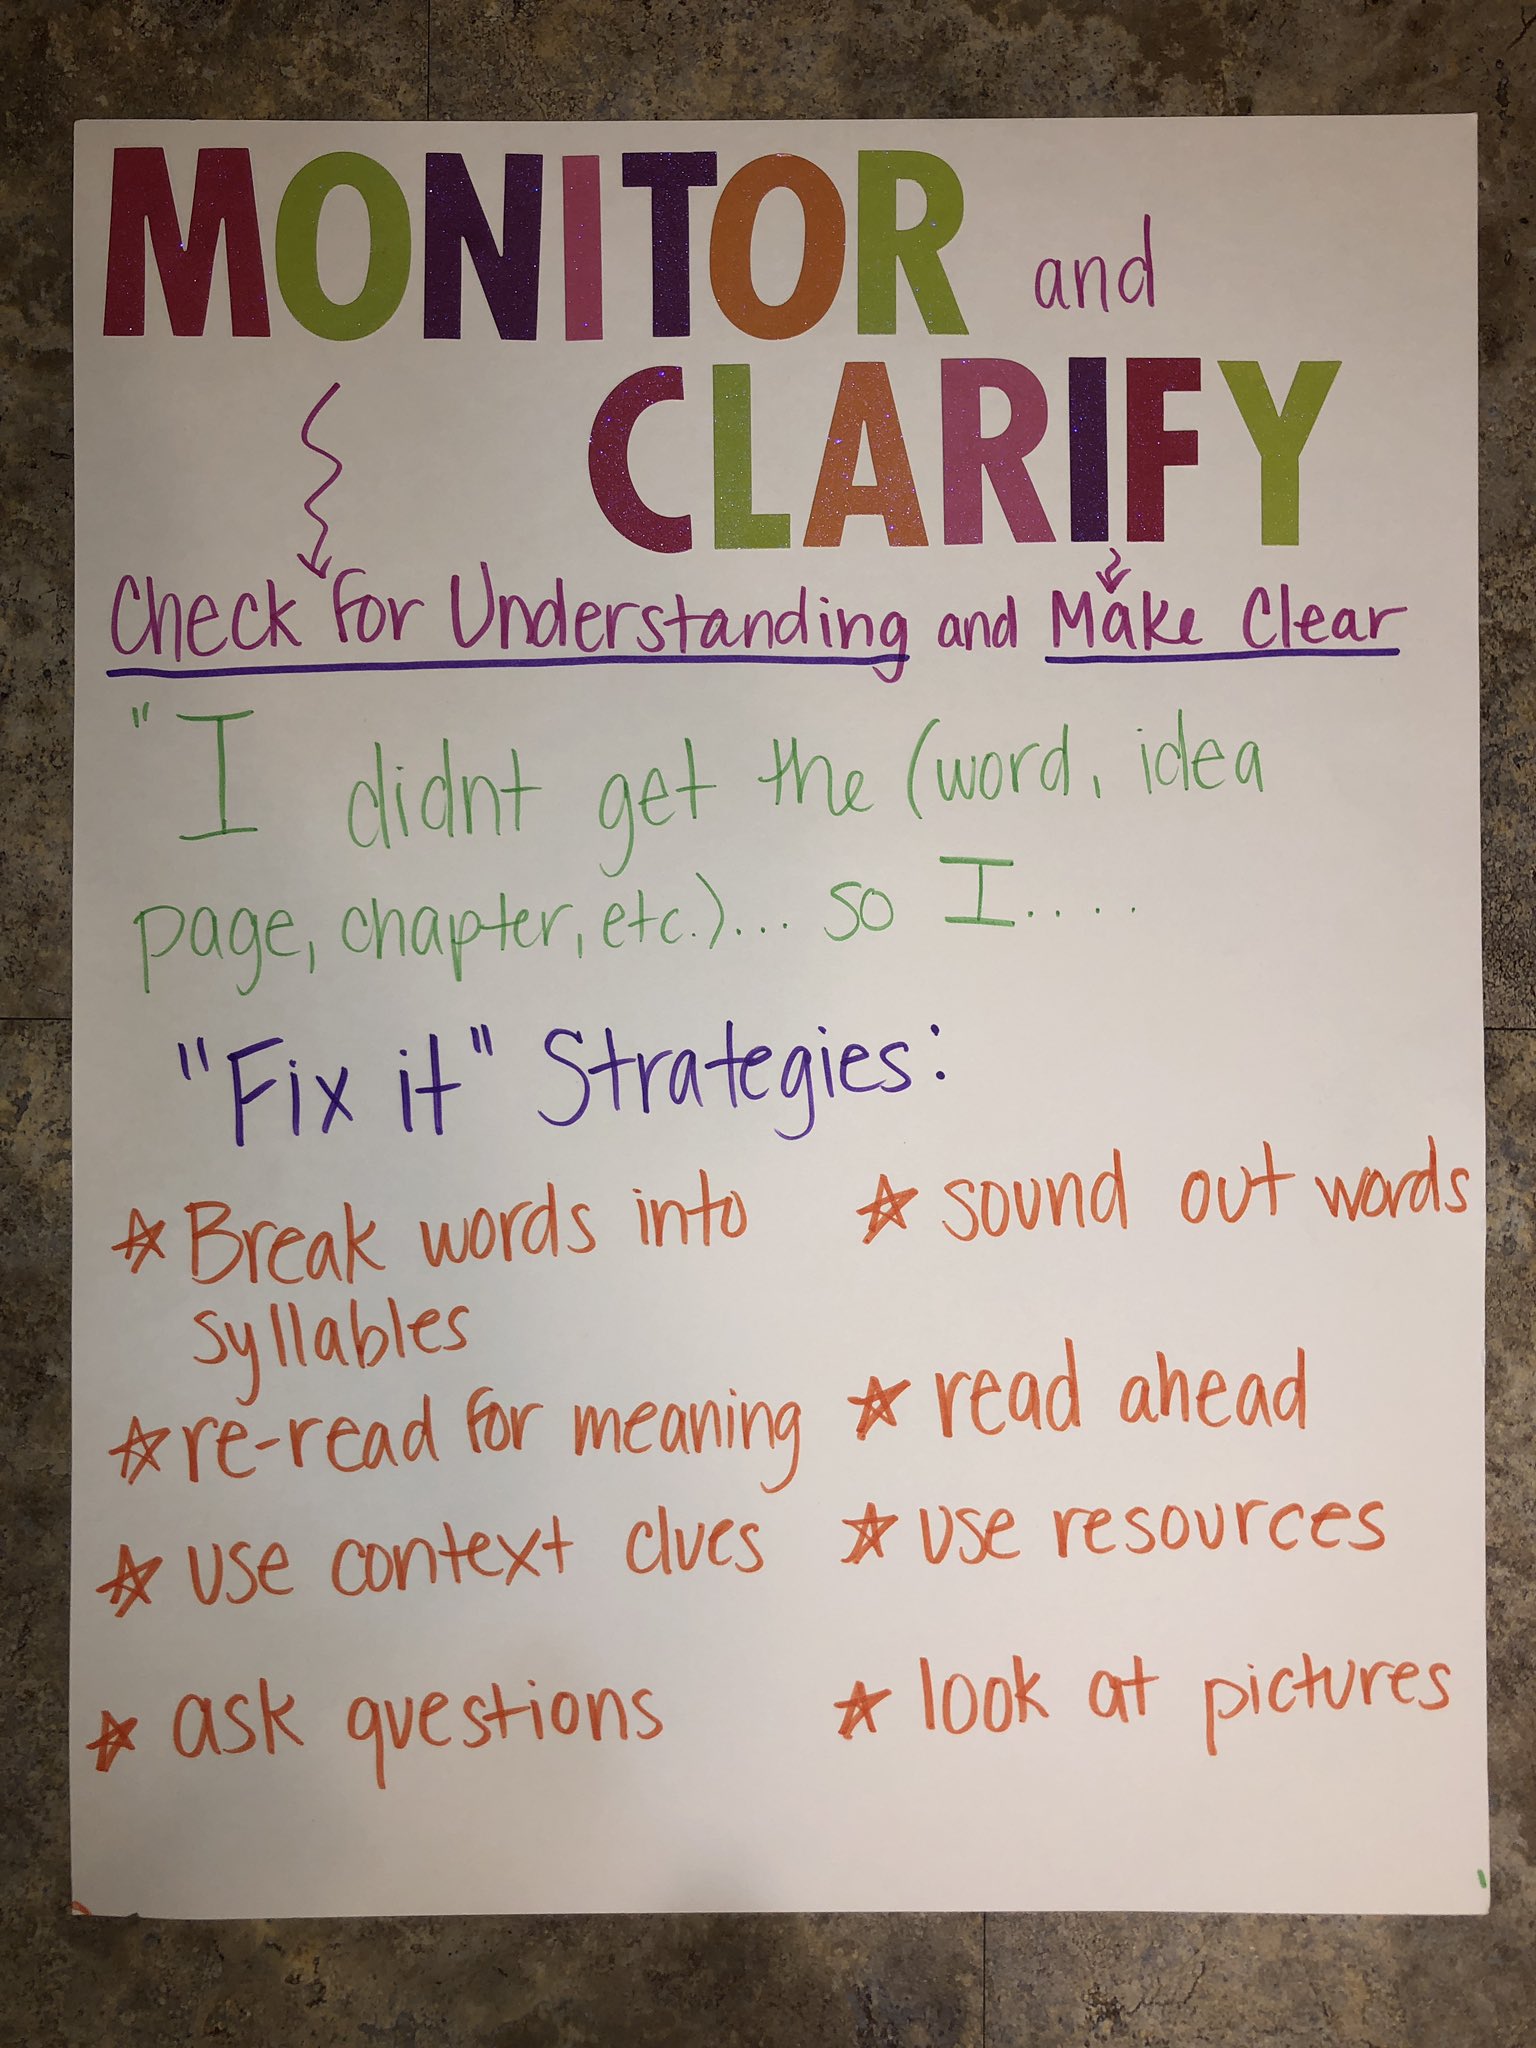 MONITOR and
CLARIFY
Check for Understanding and Make Clear
"I didnt get the (word, idea
page, chapter, etc.)... so I....
"Fix it" Strategies:
Break words into
syllables
sound out words
re-read for meaning
read ahead
use context clues
use resources
ask questions
look at pictures